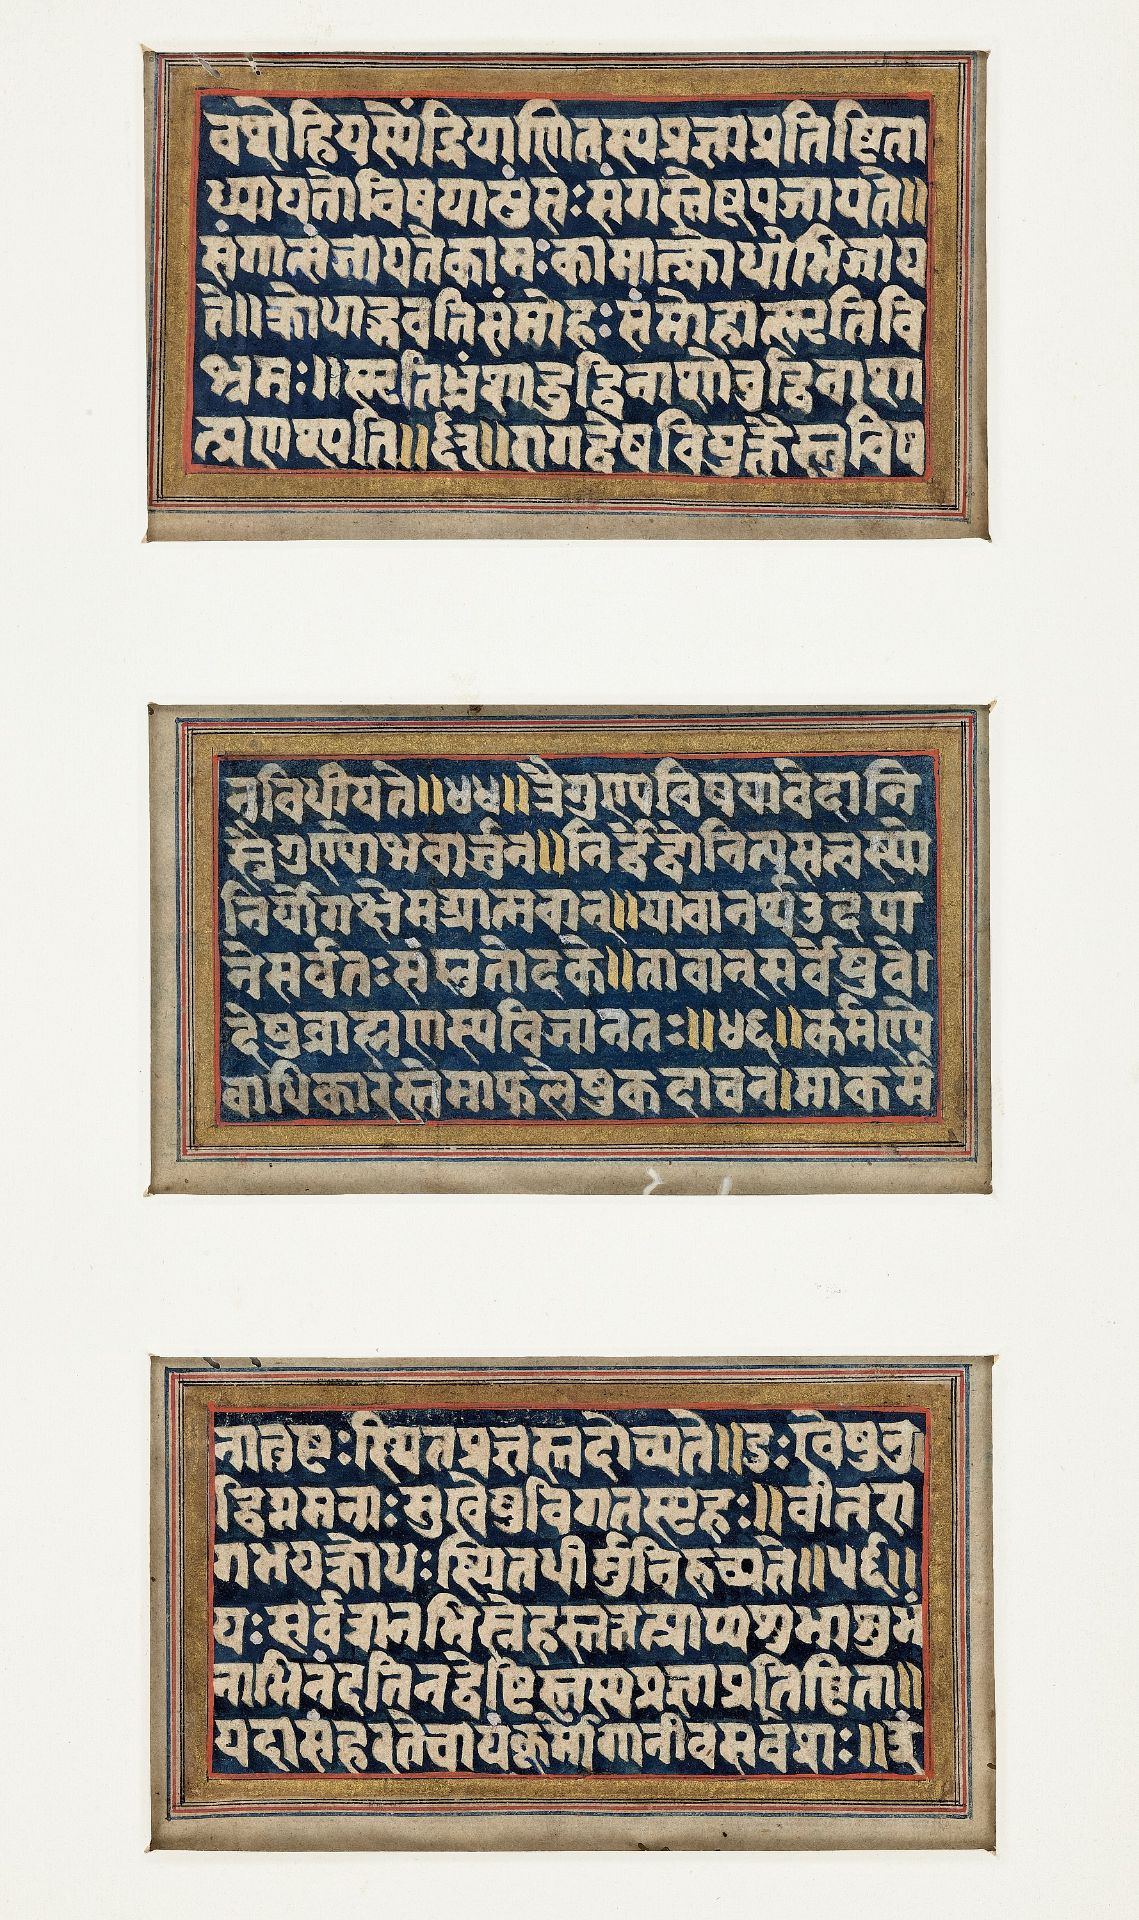 वशेहियस्येंद्रियाणितस्यप्रज्ञाप्रतिष्ठिता
ध्यायतोविषयान्पुंसः संगस्तेषूपजायते॥
संगात्संजायतेकामः कामात्क्रोधोभिजाय
ते॥क्रोधाद्भवतिसंमोहः संमोहात्स्मृतिवि
भ्रमः॥स्मृतिभ्रंशाद्बुद्धिनाशोबुद्धिनाशा
त्प्रणश्यति॥६३॥रागद्वेषवियुक्तैस्तुविष
नविधीयते॥४४॥त्रैगुण्यविषयावेदानि
स्त्रैगुण्योभवार्जुन॥निर्द्वंद्वोनित्यसत्वस्थो
निर्योगक्षेमआत्मवान्॥यावानर्थउदपा
नेसर्वतः संप्लुतोदके॥तावान्सर्वेषुवे
देषुब्राह्मणस्यविजानतः॥४६॥कर्मण्ये
वाधिकारस्तेमाफलेषुकदाचन।माकर्म
नातुष्टः स्थितप्रज्ञस्तदोच्यते॥दुः खेषुनु
द्विग्नमनाः सुखेषुविगतस्पृहः॥वीतरा
गभयक्रोधः स्थितधीर्मुनिरुच्यते॥५६॥
यः सर्वत्रानभिस्नेहस्तत्तत्प्राप्यशुभाशुभं
नाभिनंदतिनद्वेष्टितस्यप्रज्ञाप्रतिष्ठिता॥
यदासंहरतेचायंकूर्मोगानीवसर्वशः॥इं